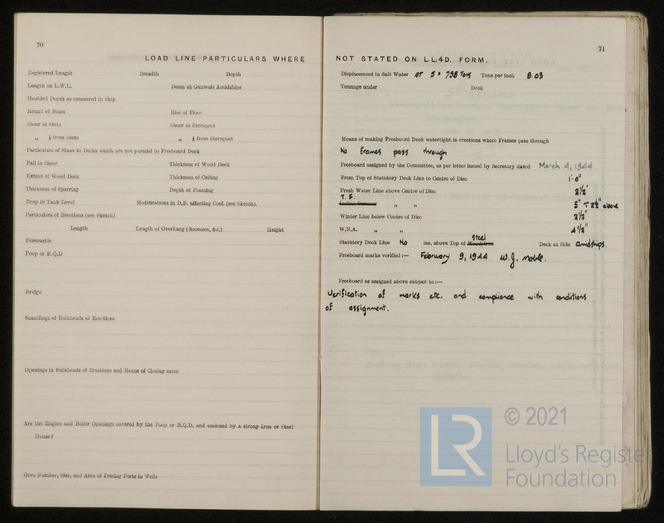 70
LOAD LINE PARTICULARS WHERE
Registered Length Breadth Depth
Length on L.W.L. Beam at Gunwale Amidships
Moulded Depth as measured in Ship
Round of Beam Rise of Floor
Sheer at Stem Sheer at Sternpost
„ ⅛ from Stem „ ⅛ from Sternpost
Particulars of Sheer in Decks which are not parallel to Freeboard Deck
Fall in Sheer Thickness of Wood Deck
Extent of Wood Deck Thickness of Ceiling
Thickness of Sparring Depth of Framing
Drop in Tank Level Modifications in D.B. affecting Coef. (see Sketch).
Particulars of Erections (see Sketch)
Length Length of Overhang (Recesses, &c.) Height
Forecastle
Poop or R.Q.D
Bridge
Scantlings of Bulkheads of Erections
Openings in Bulkheads of Erections and Means of Closing same
Are the Engine and Boiler Openings covered by the Poop or R.Q.D. and enclosed by a strong Iron or Steel
House?
Give Number, Size, and Area of Freeing Ports in Wells
71
NOT STATED ON LL4D. FORM.
Displacement in Salt Water at 5·0 798 Tons Tons per inch 8·03
Tonnage under Deck
Means of making Freeboard Deck watertight in erections where Frames pass through
No frames pass through
Freeboard assigned by the Committee, as per letter issued by Secretary dated March 4, 1944
From Top of Statutory Deck Line to Centre of Disc 1·0"
Fresh Water Line above Centre of Disc 2½"
T. F. „ „ 5" T 2½" above
Winter Line below Centre of Disc 2½"
W.N.A. „ „ 4½"
Statutory Deck Line No ins. above Top of Steel Deck at Side amidships.
Freeboard marks verified :— February 9, 1944 W. J. Noble.
Freeboard as assigned above subject to :—
Verification of marks etc. and compliance with conditions
of assignment.
LR
© 2021
Lloyd's Register
Foundation